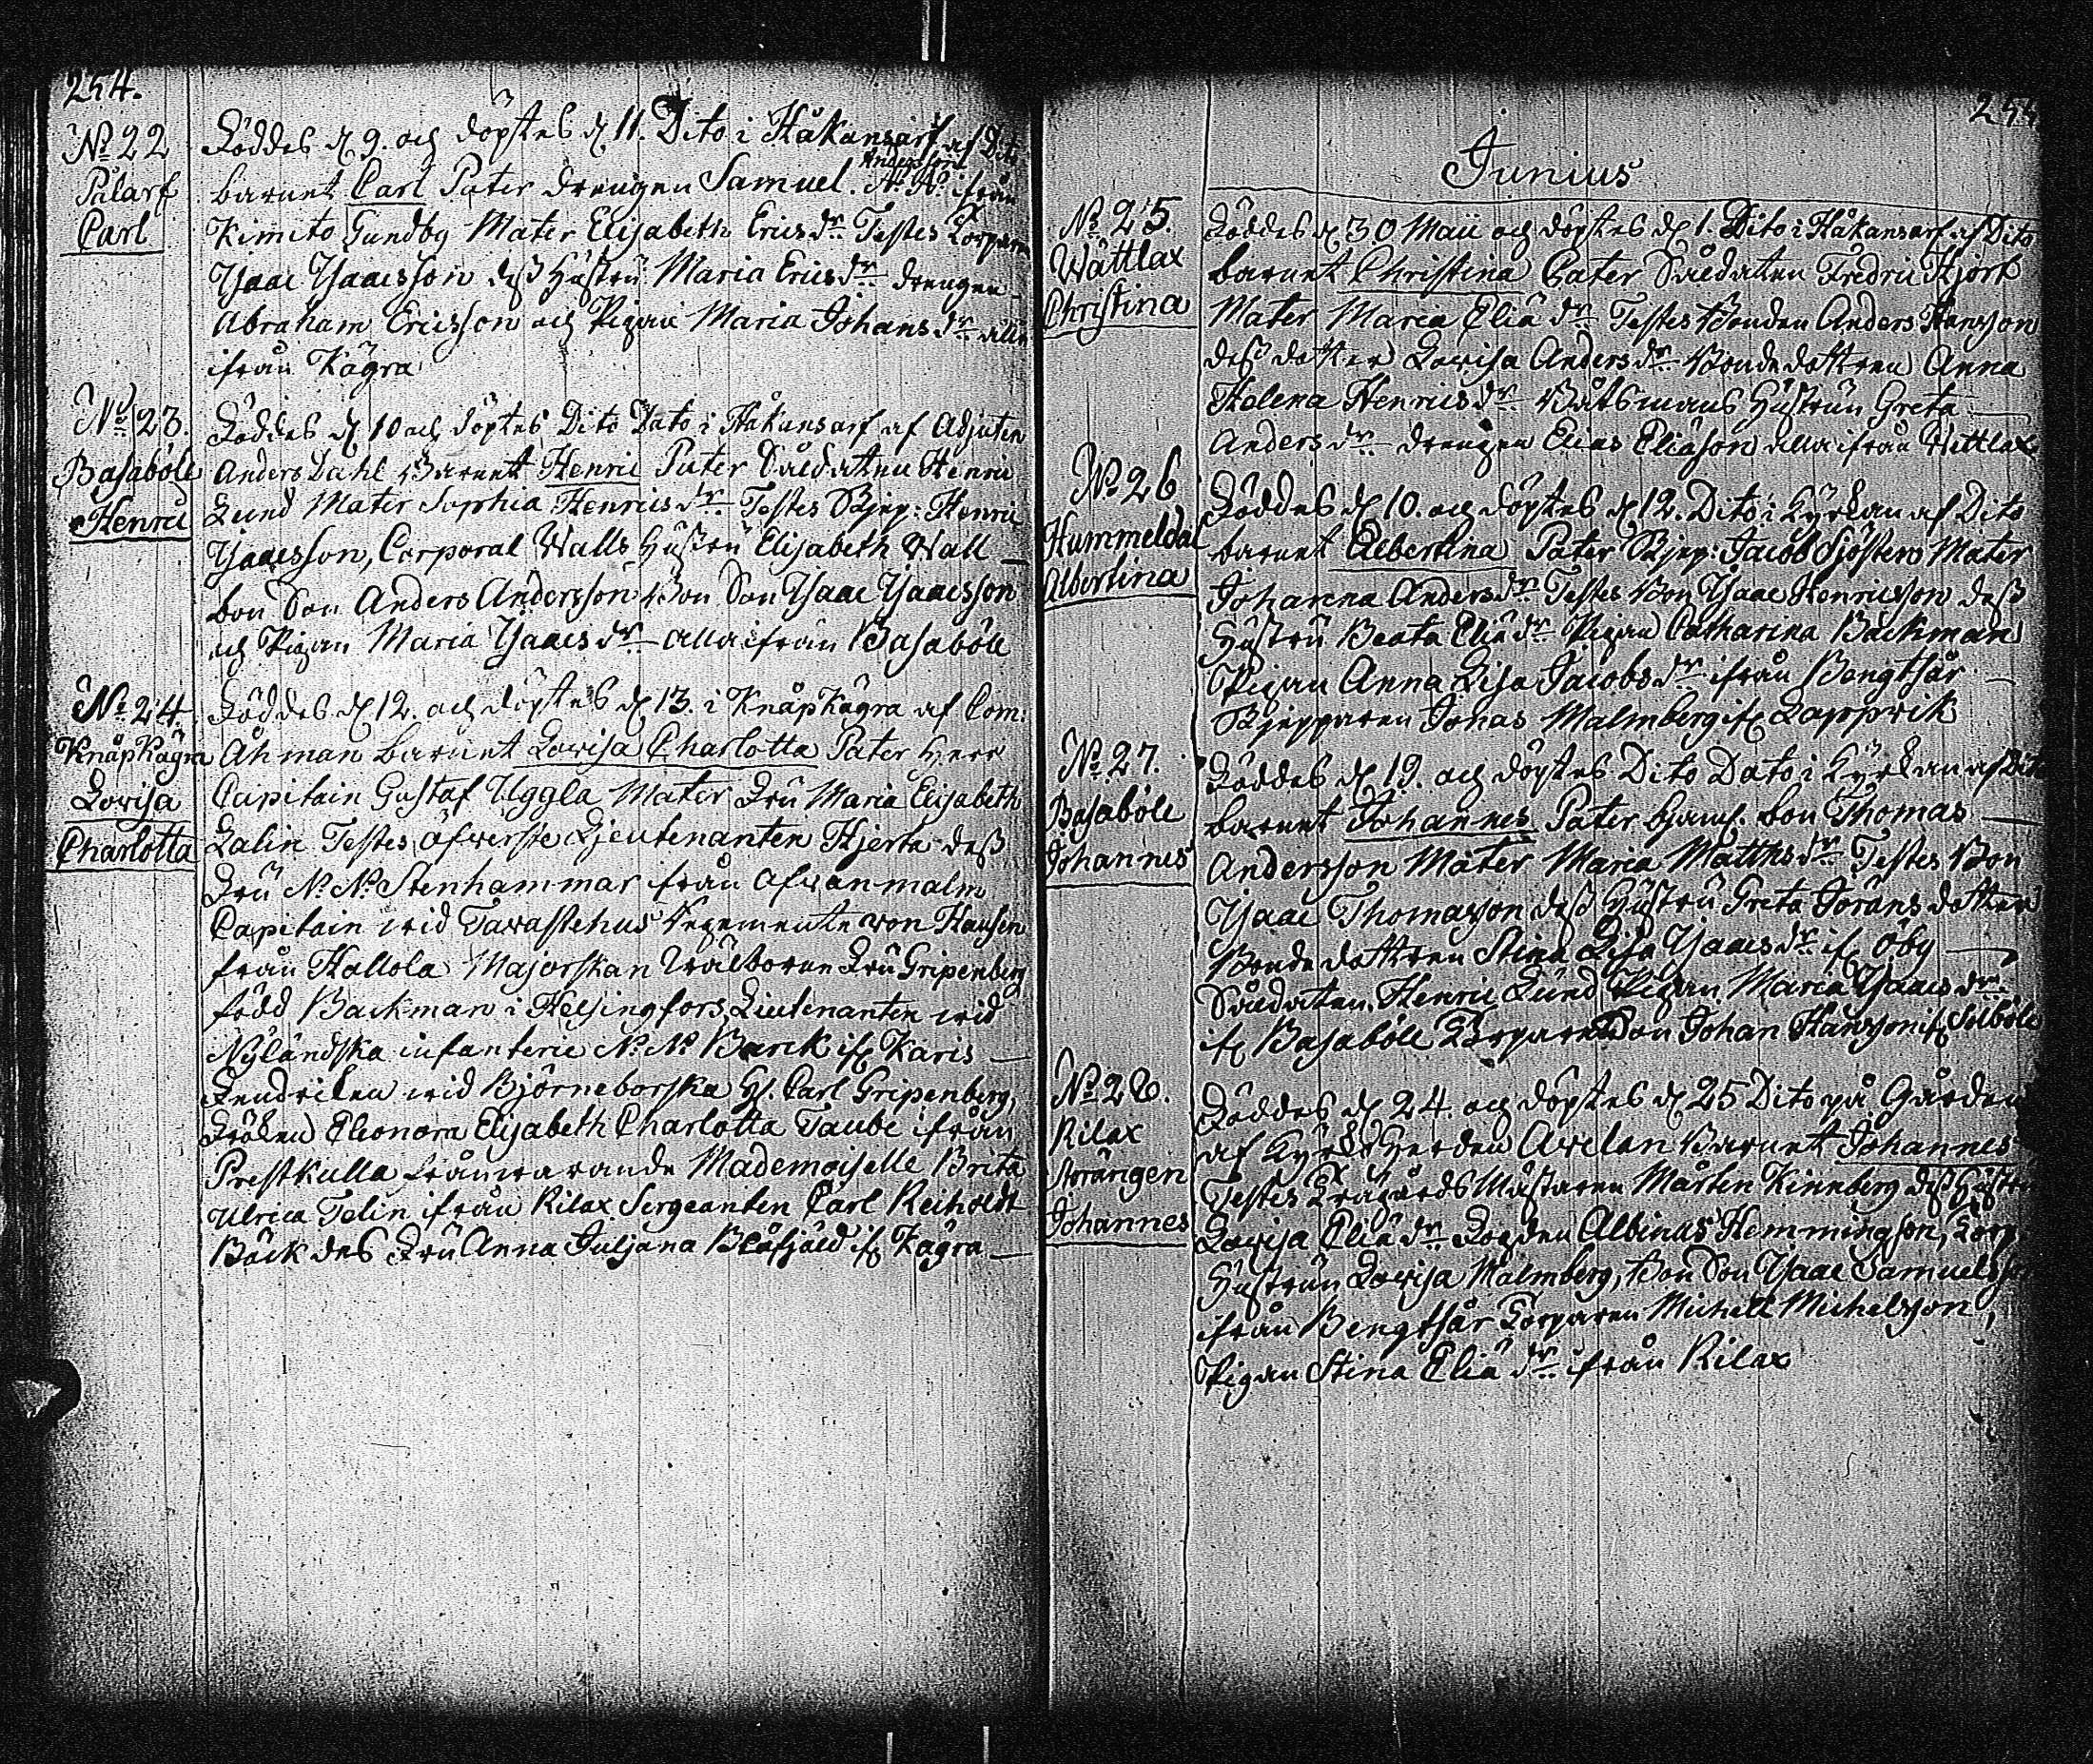 254.
No 22
Pålarf
Carl
Föddes d 9. och döptes d 11. Dito i Håkansarf af Dito
Andersson
barnet Carl Pater drengen Samuel. ifrån
Kimito Gundby Mater Elisabeth Ericsdr Testes Torparen
Ysaac Ysaacsson dess Hustru Maria Ericsdr drengen
Abraham Ericsson och Pigan Maria Johansdr alla
ifrån Kågra
No 23.
Basaböle
Henric
Föddes d 10 och döptes Dito Dato i Håkansarf af Adjuten
Anders Dahl Barnet Henric Pater Såldaten Henric
Lund Mater Sophia Henricsdr Testes Skjep: Henric
Ysaacsson, Corporal Walls Hustru Elisabeth Wall
bon Son Anders Andersson Bon Son Ysaac Ysaacsson
och Pigan Maria Ysaacsdr alla ifrån Basaböle
No 24.
Knåpkägra
Lovisa
Charlotta
Föddes d 12. och döptes d 13. i Knåpkägra af Com:
Åhman barnet Lovisa Charlotta Pater Herr
Capitain Gustaf Uggla Mater Fru Maria Elisabeth
Galin Testes öfwerste Ljeutenanten Hjerta dess
Fru N. N. Stenhammar ifrån
Capitain wid Tavastehus Regemente von Hausen
från Hollola Majorskan Wälborne Fru Gripenberg
född Backman i Helsingfors, Lieutenanten wid
Nyländska infanterie N. N. Barck if Karis
Fendriken wid Björneborska Carl Gripenberg,
Fröken Eleonora Elisabeth Charlotta Taube ifrån
Prestkulla frånwarande Mademoiselle Brita
Ulrica Telin ifrån Rilax Sergeanten Carl Reiholdt
Bäck des Fru Anna Juljana Blåfjäld if Kägra
Junius
No 25.
Wättlax
Christina
Föddes d 30 Maii och döptes d 1. Dito i Håkansarf af Dito
barnet Christina Pater Såldaten Fredric Hjort
Mater Maria Eliä dr Testes Bonden Anders Hansson
dess dotter Lovisa Andersdr Bondedottren Anna
Helena Henricsdr Båtsmans Hustrun Greta
Andersdr drengen Elias Eliäson alla ifrån Wettlax
No 26
Hummeldal
Albertina
Föddes d 10. och döptes d 12. Dito i Kyrkan af Dito
barnet Albertina Pater Skjep: Jacob Sjösten Mater
Johanna Andersdr Testes Bon Ysaac Henricsson dess
Hustru Beata Eliädr Pigan Catharina Backman
Pigan Anna Lisa Jacobsdr ifrån Bengtsår
Skjepparen Jonas Malmberg if Lappvik
No 27.
Basaböle
Johannes
Föddes d 19. och döptes Dito Dato i Kyrkan af Dito
barnet Johannes Pater bon Thomas
Andersson Mater Maria Mattsdr Testes Bon
Ysaac Thomasson dess Hustru Greta Göransdotter
Bondedottren Stina Lisa Ysaacsdr if Öby
Såldaten Henric Lund Pigan Maria Ysaacsdr
if Basaböle Torpare Son Johan Hansson if Solböle
No 28.
Rilax
Störängen
Johannes
Föddes d 24. och döptes d 25 Dito på Gården
af Kyrko Herden Avelan Barnet Johannes
Testes Trägårds Mästaren Mårten Kinnberg dess Hustru
Lovisa Eliädr Fogden Albinus Hemmingson, Torp
Hustrun Lovisa Malmberg, Bon Son Ysaac Samuelsson
ifrån Bengtsår Torparen Michell Michelsson,
Pigan Stina Eliä dr ifrån Rilax